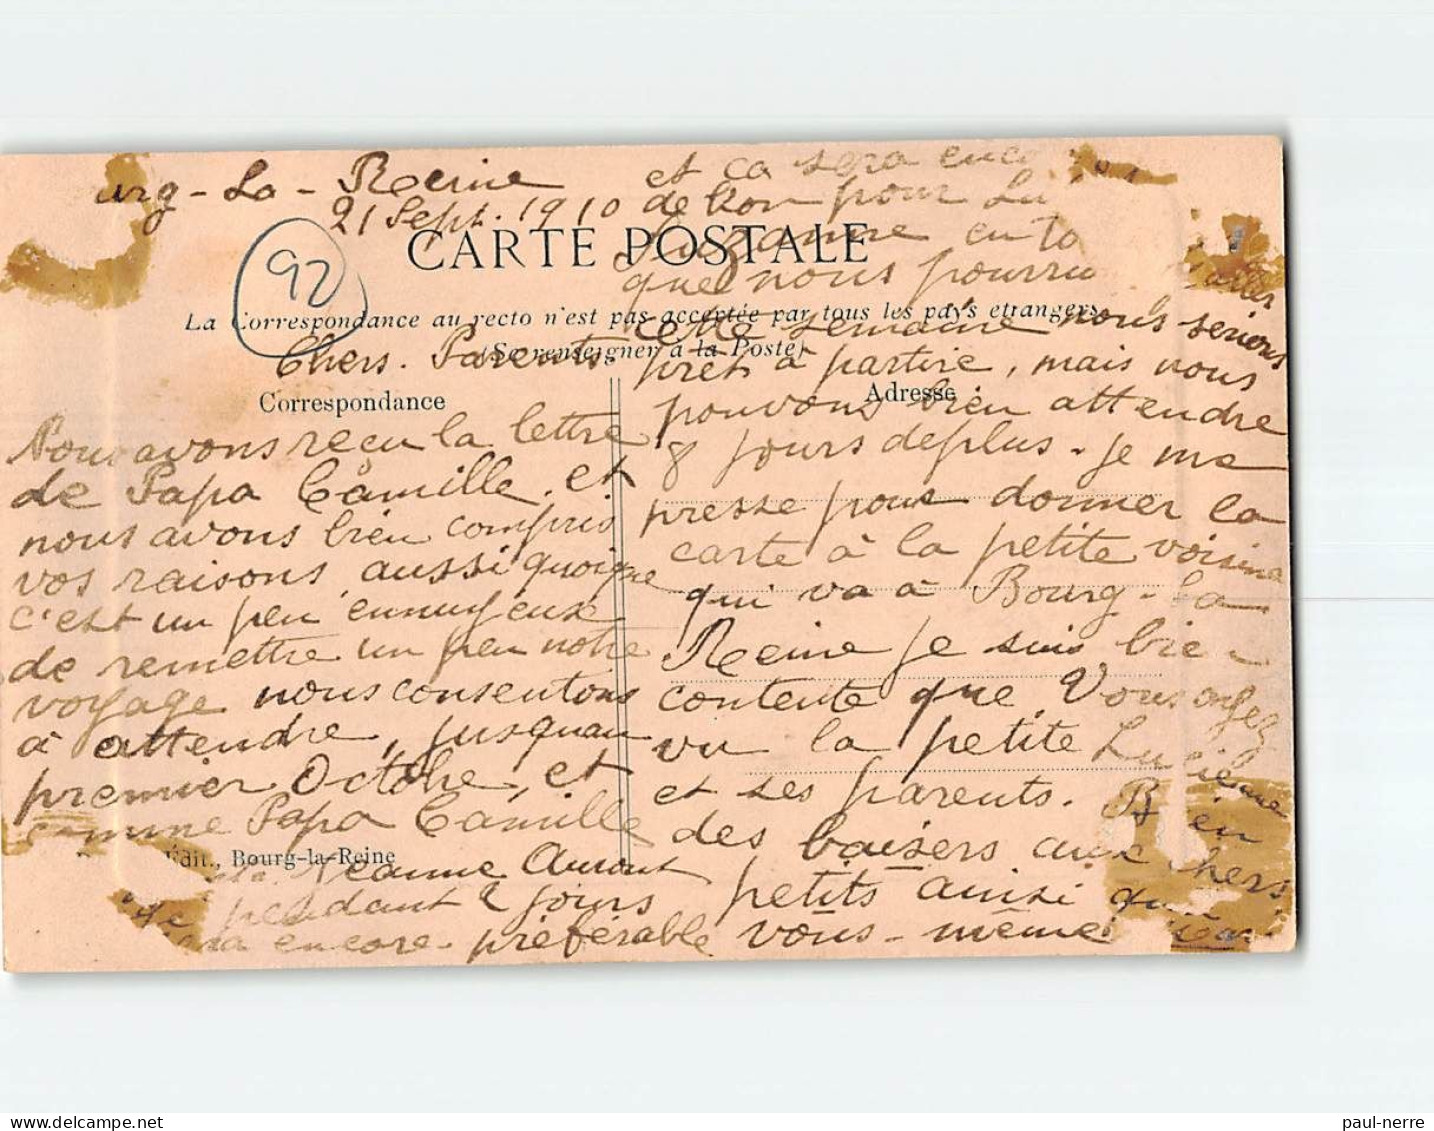 urg-La-Reine
21 Sept. 1910
CARTE POSTALE
92
La Correspondance au recto n'est pas acceptée par tous les pays etrangers
(Se renseigner à la Poste)
Chers. Parents
Correspondance
Adresse
Nous avons reçu la lettre
de Papa Camille, et
nous avons bien compris
vos raisons aussi quoique
c'est un peu ennuyeux
de remettre un peu notre
voyage nous consentons
à attendre, jusquau
premier Octobre, et
comme Papa Camille
Édit., Bourg-la-Reine
Jeanne Auront
pendant 2 jours
sera encore préférable
et ca sera enco
de bon pour Lu
Suzanne
que nous pourru aller
cette semaine nous serions
prets à partire, mais nous
pouvons bien attendre
8 jours deplus. je me
presse pour donner la
carte à la petite voisine
qui va à Bourg-la
Reine je suis bien
contente que Vous ayez
vu la petite Lucienne
et ses parents. Bien
des baisers aux chers
petits ainsi qu'a
vous-même
paul-nerre